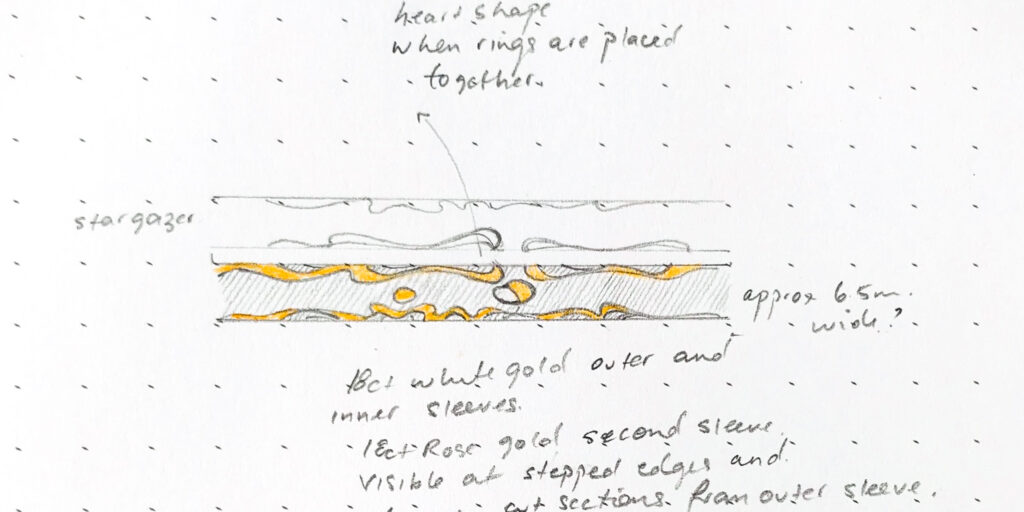 heart shape
when rings are placed
together.
stargazer
approx 6.5m.
wide?
18ct white gold outer and
inner sleeves.
18ct Rose gold second sleeve,
visible at stepped edges and
cut sections from outer sleeve.